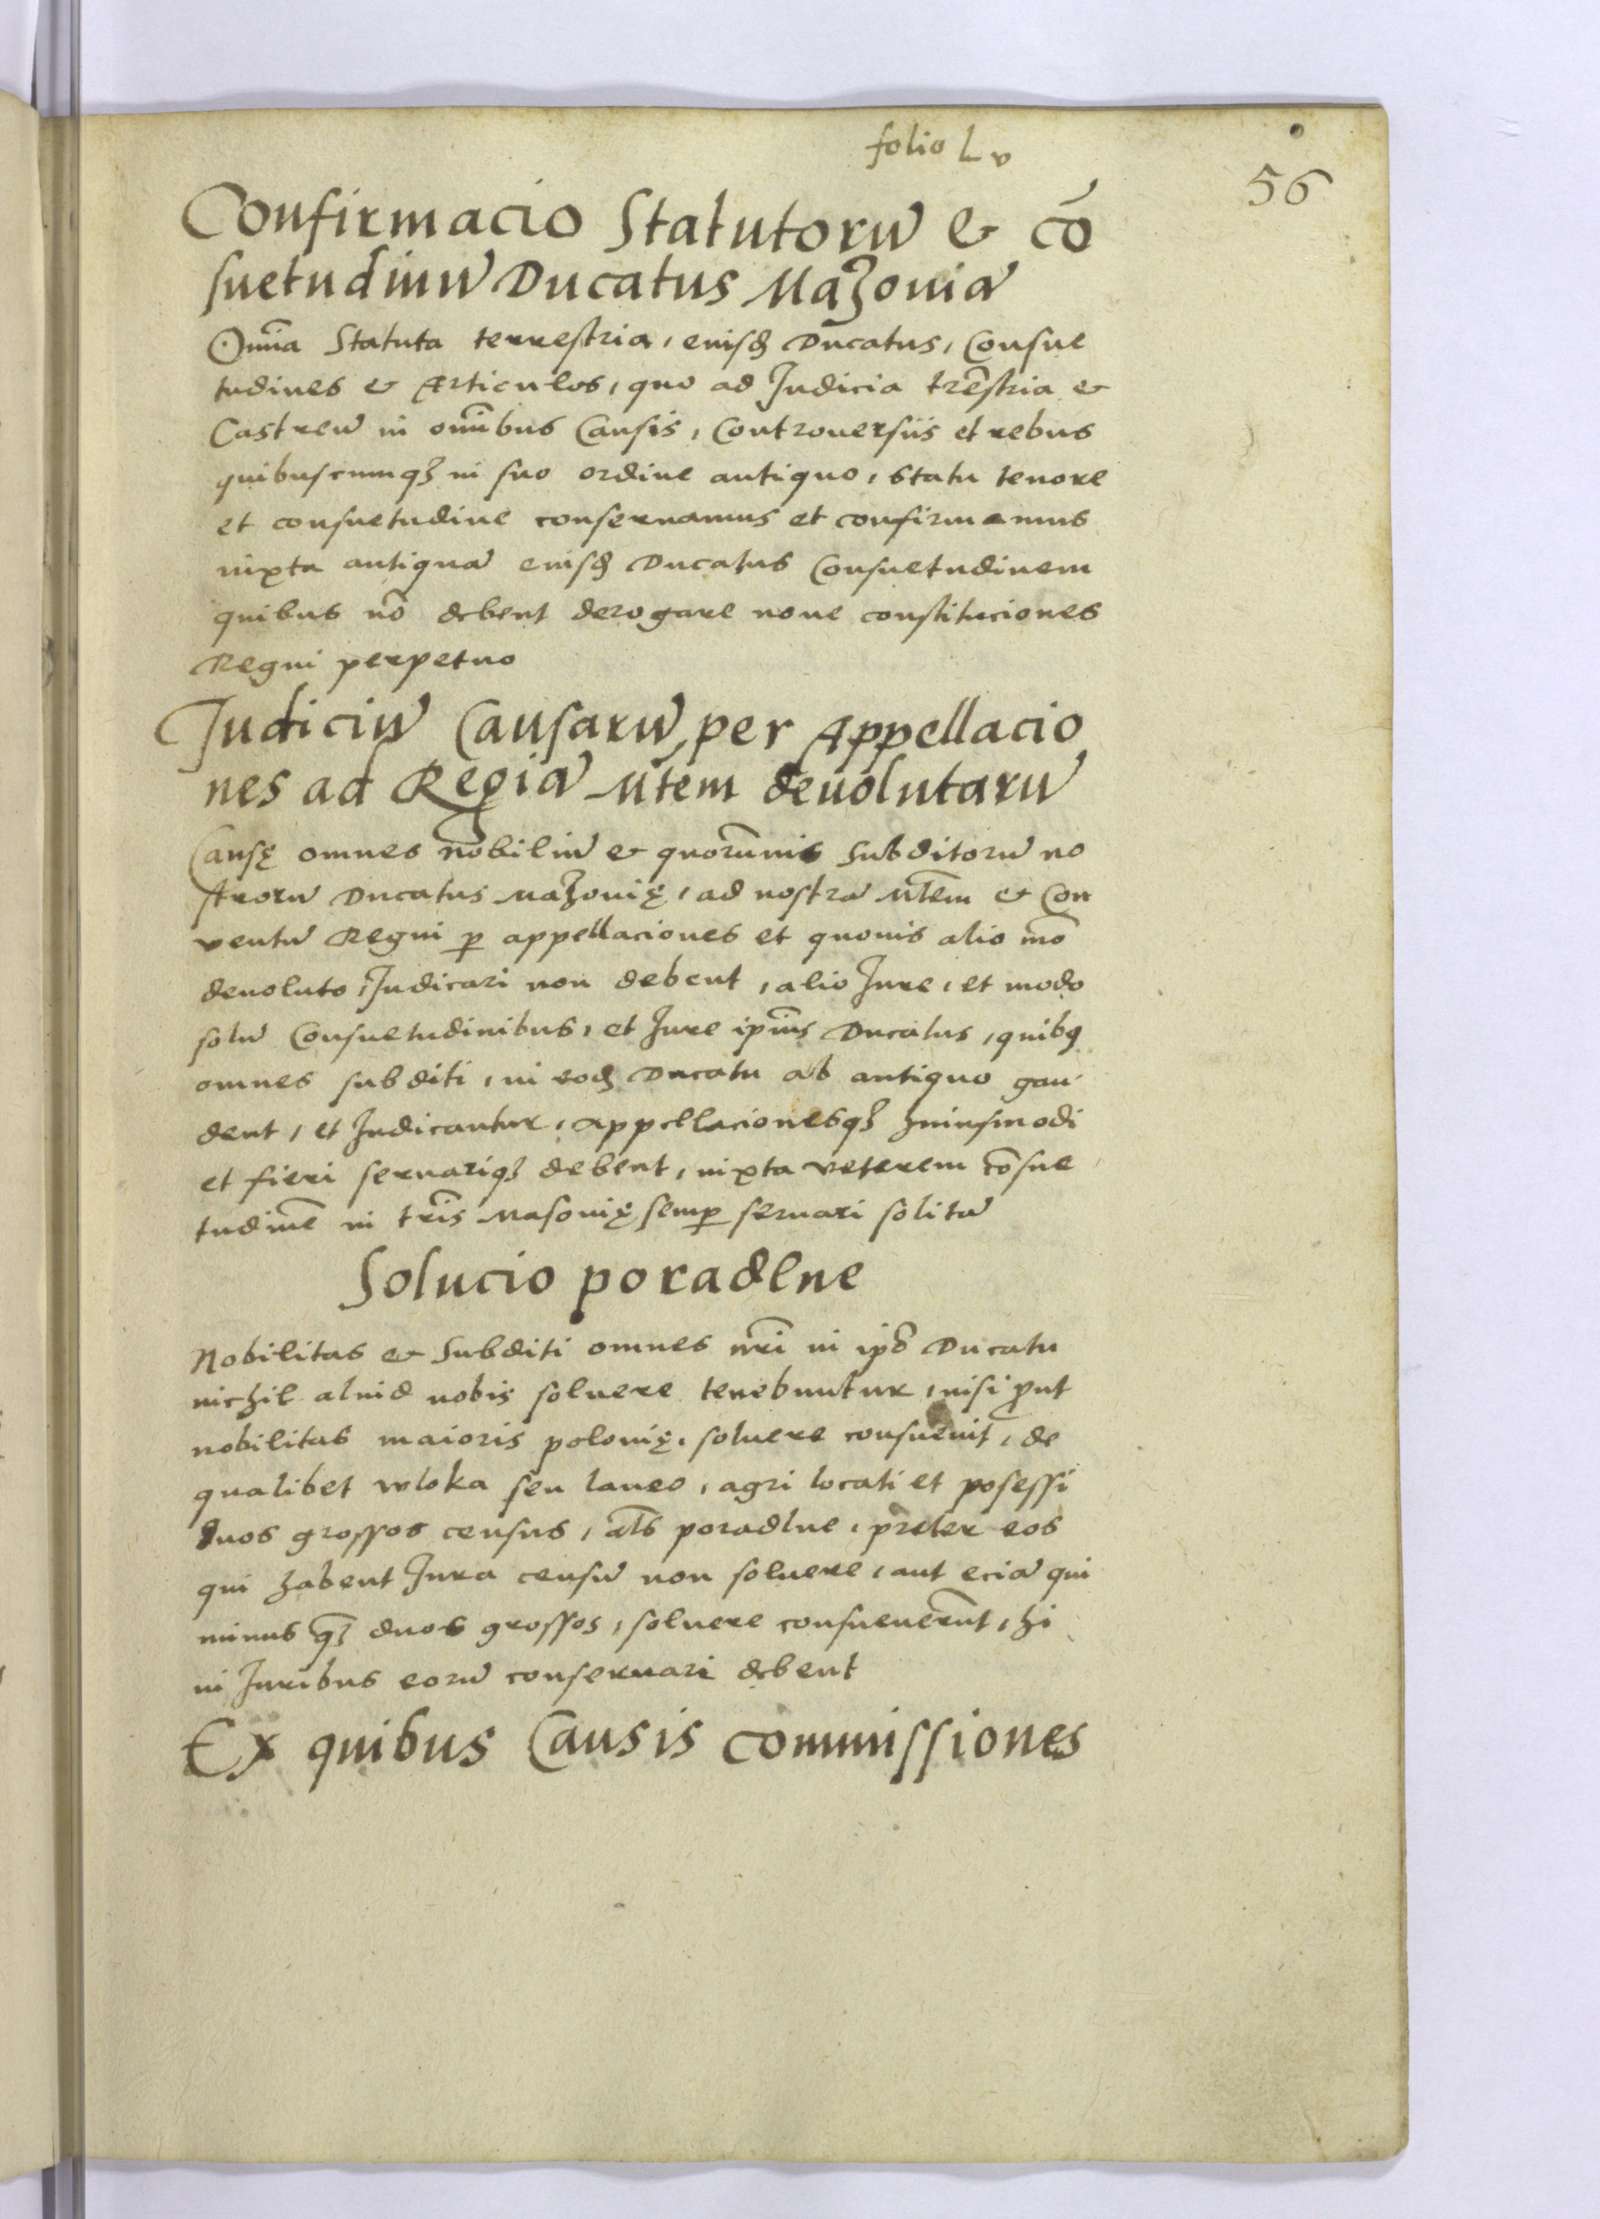 folio Lv
56
Confirmacio Statutorū & cō
suetudinū Ducatus Mazouiā
Om̄ia Statuta terrestria, eiusdꝫ Ducatus, Consue
tudines & Articulos, quo ad Judicia tr̄estria &
Castreñ in om̄ibus Causis, Controuersiis et rebus
quibuscumqꝫ in suo ordine antiquo, statu tenore
et consuetudine conseruamus et confirmamus
iuxta antiquā eiusdꝫ Ducatus Consuetudinem
quibus nō debent derogare noue constituciones
Regni perpetuo
Judiciū Causarū per Appellacio
nes ad Regiā Mtem deuolutarū
Causę omnes nobiliū & quorūuis Subditorū no
strorū Ducatus Mazouię, ad nostrā Mtem & Con
ventū Regni ꝑ appellaciones et quouis alio mō
deuoluto, Judicari non debent, alio Jure, et modo
solū Consuetudinibus, et Jure ip̄ius Ducatus, quibꝰ
omnes subditi, in eodꝫ Ducatu ab antiquo gau
dent, et Judicantur, appellacionesqꝫ huiusmodi
et fieri seruariqꝫ debent, iuxta veterem cōsue
tudinē in tr̄is Masouię semꝑ seruari solitā
Solucio poradlne
Nobilitas & Subditi omnes nr̄i in ip̄o Ducatu
nichil aluid nobis soluere tenebuntur, nisi ꝓut
nobilitas maioris polonię, soluere consueuit, de
qualibet wloka seu laneo, agri locati et posessi
duos grossos census, als̄ poradlne, preter eos
qui habent Jura censū non soluere, aut eciā qui
minus qꝫ duos grossos, soluere consueuer̄nt, hi
in Juribus eorū conseruari debent
Ex quibus Causis commissiones